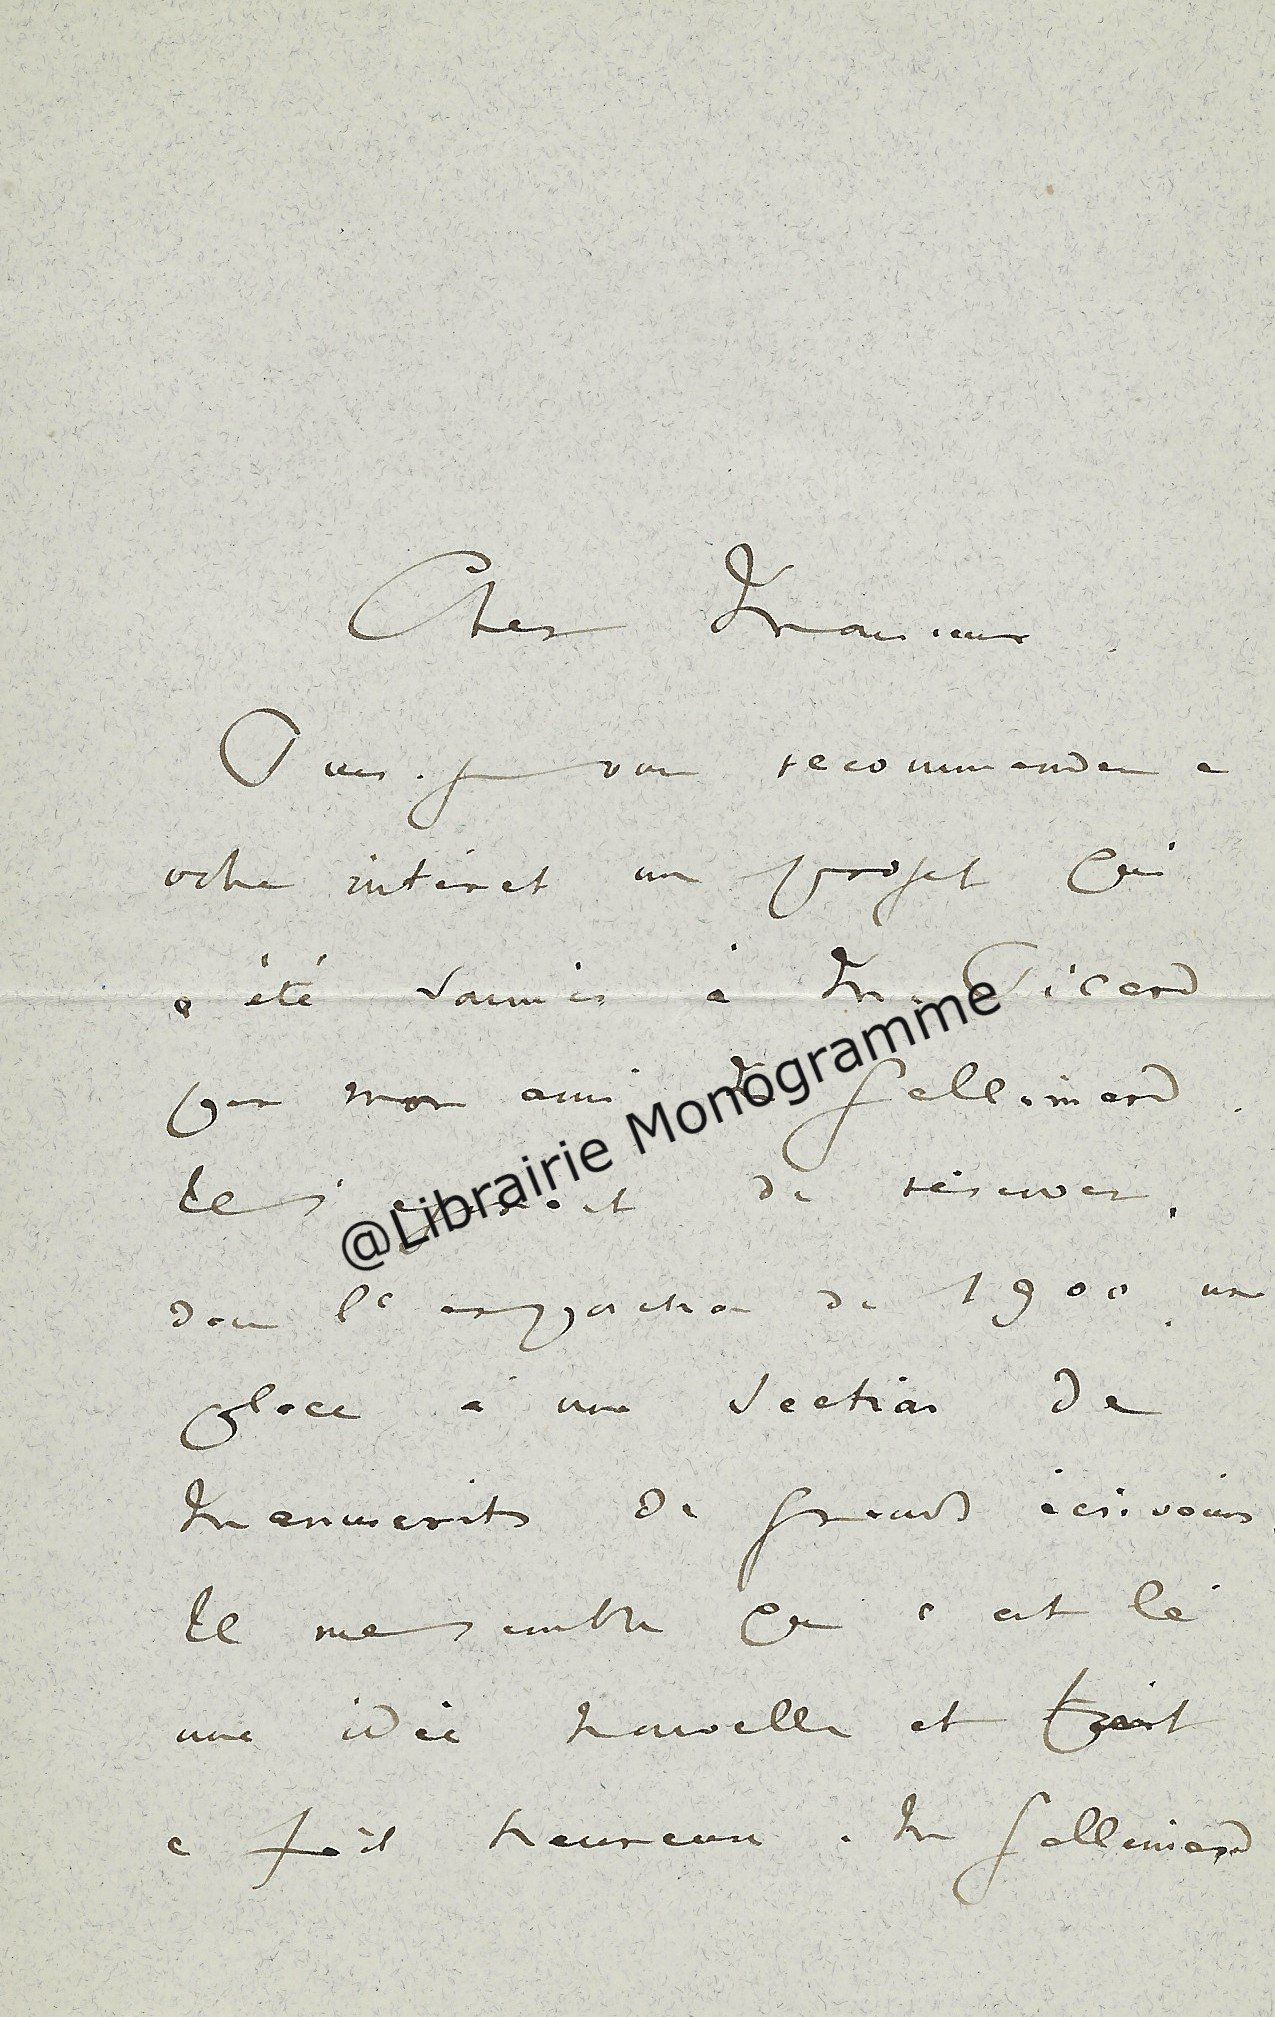 Cher Monsieur
Puis-je vous recommander à
votre intérêt un projet qui
a été soumis à M. Picard
par mon ami M Gallimard.
Il s'agirait de réserver,
dans l'exposition de 1900 une
place à une section de
Manuscrits de grands écrivains.
Il me semble que c'est là
une idée nouvelle et tout
à fait heureuse. M Gallimard
@Librairie Monogramme